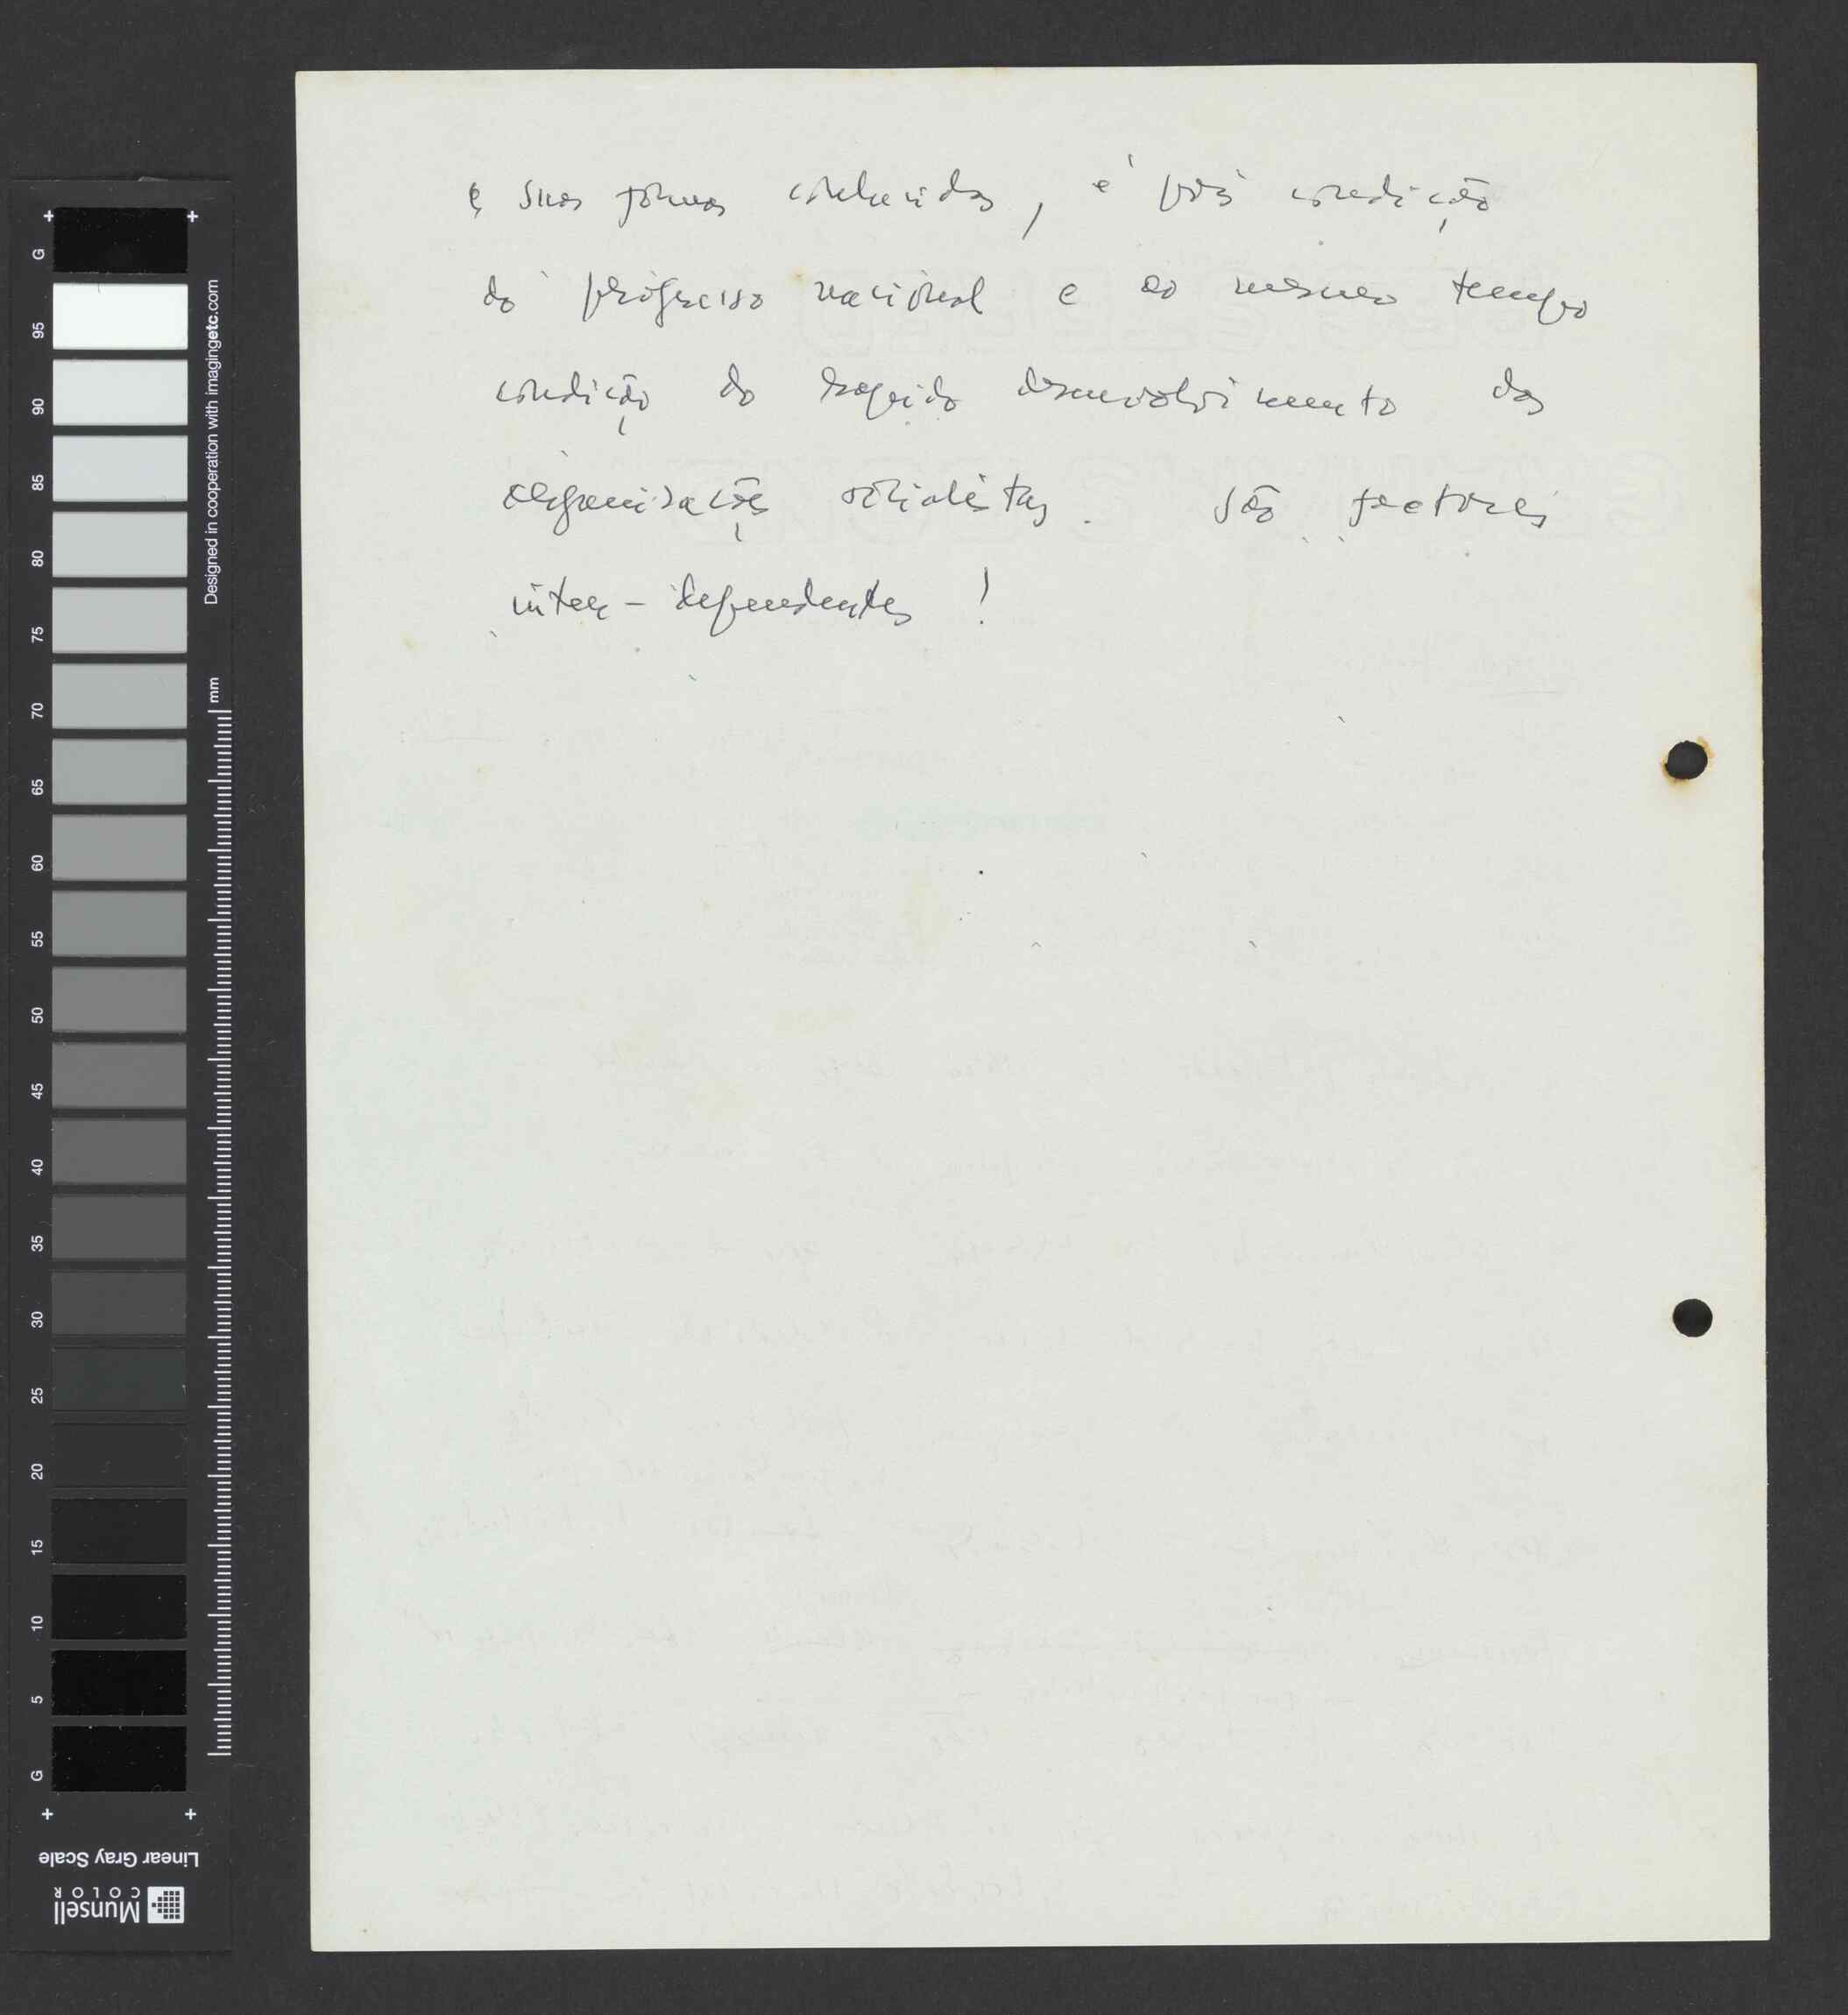 e suas formas conhecidas, é pois condição
do progresso nacional e ao mesmo tempo
condição do rapido desenvolvimento das
organizações socialistas. São factores
inter-dependentes!
G
95
90
85
80
75
70
65
60
55
50
45
40
35
30
25
20
15
10
5
G
Designed in cooperation with imagingetc.com
mm
Linear Gray Scale
Munsell
COLOR